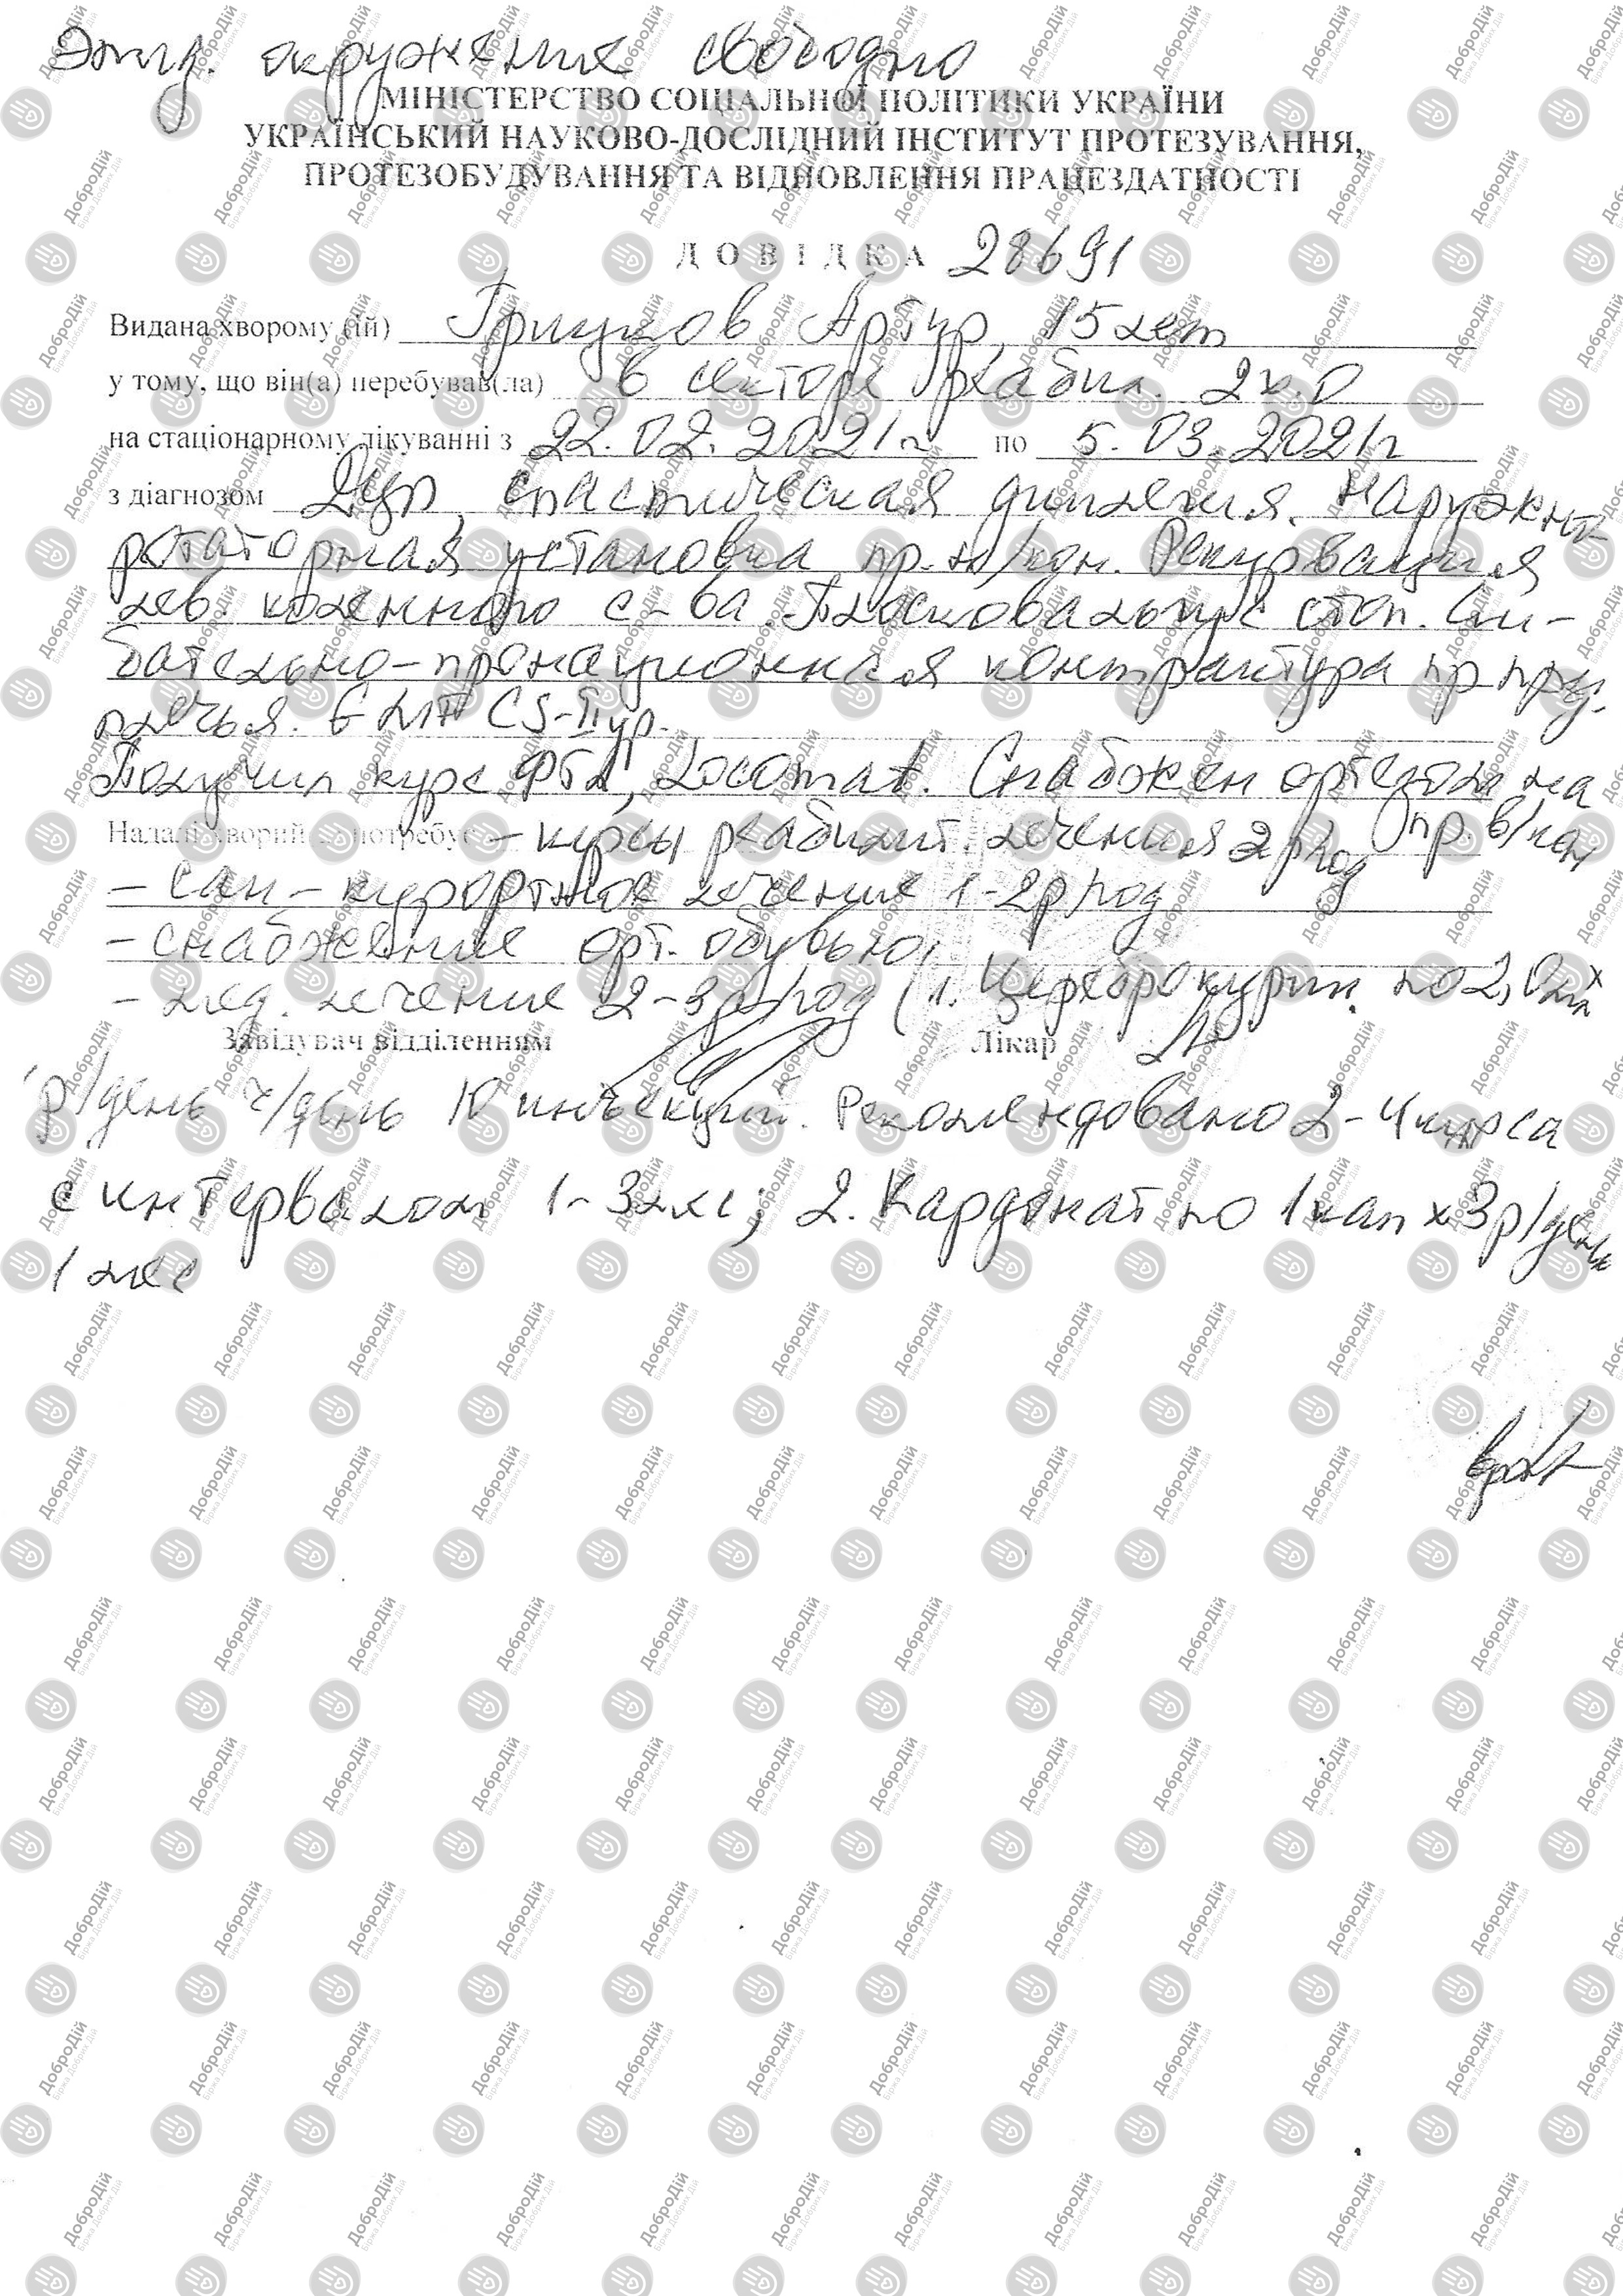 Эпид. окружение свободно
МІНІСТЕРСТВО СОЦІАЛЬНОЇ ПОЛІТИКИ УКРАЇНИ
УКРАЇНСЬКИЙ НАУКОВО-ДОСЛІДНИЙ ІНСТИТУТ ПРОТЕЗУВАННЯ,
ПРОТЕЗОБУДУВАННЯ ТА ВІДНОВЛЕННЯ ПРАЦЕЗДАТНОСТІ
ДОВІДКА 28691
Видана хворому (ій) Артур, 15 лет
у тому, що він(а) перебував(ла) в секторе реабил. 2к.0
на стаціонарному лікуванні з 22.02.2021г по 5.03.2021г
з діагнозом ДЦП, спастическая диплегия. Наружно-
ротаторная установка пр. н/кон. Рекурвация
лев. коленного с-ва. Плосковальгус стоп. Сги-
бательно-пронационная контрактура пр пред.
плечья. GMF CS-II ур.
Получил курс ФТЛ, Locomat. Снабжен ортезом на
пр. в/кон
Надалі хворий потребує - курсы реабилит. лечения 2р/год
- Сан-курортное лечение 1-2р/год
- снабжение орт. обувью,
- мед. лечение 2-3р/год (1. Цереброкурин по 2,0мл х
Завідувач відділенням Лікар
1р/день ч/день 10 инъекций. Рекомендовано 2-4 курса
с интервалом 1-3мес; 2. Кардонат по 1кап х 3р/день
1 мес